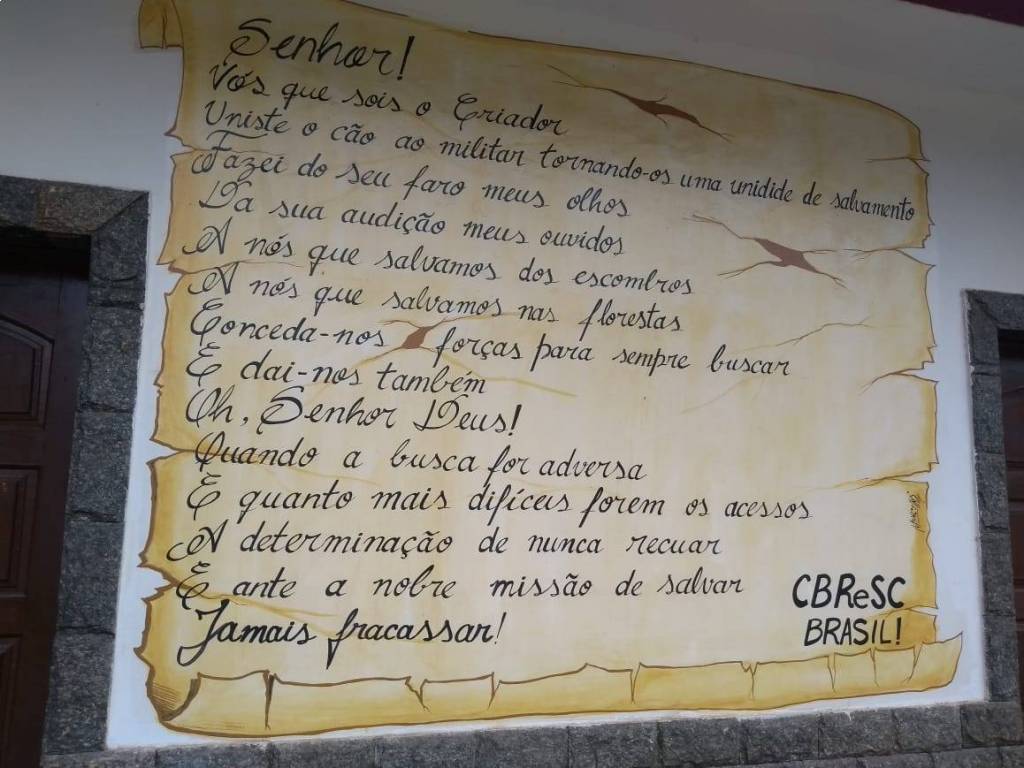 Senhor!
Vós que sois o Criador
Uniste o cão ao militar tornando-os uma unidide de salvamento
Fazei do seu faro meus olhos
Da sua audição meus ouvidos
A nós que salvamos dos escombros
A nós que salvamos nas florestas
Conceda-nos forças para sempre buscar
E dai-nos também
Oh, Senhor Deus!
Quando a busca for adversa
E quanto mais difíceis forem os acessos
A determinação de nunca recuar
E ante a nobre missão de salvar
Jamais fracassar!
CBReSC
BRASIL!